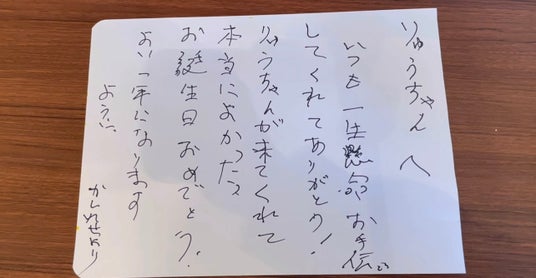 りゅうちゃんへ
いつも一生懸命お手伝い
してくれてありがとう!
りゅうちゃんが来てくれて
本当によかった
お誕生日おめでとう!
よい一年になります
ように。